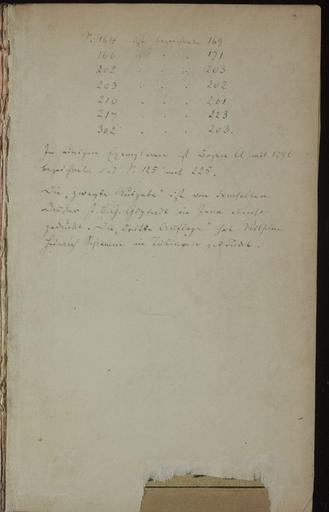 S. 164 ist bezeichnet 169
166 " " " 171
202 " " " 203
203 " " " 202
210 " " " 201
217 " " " 223
302 " " " 203.
In einigen Exemplaren ist Bogen A mit 1796
bezeichnet und S. 125 mit 225.
Die „zweyte Ausgabe" ist von demselben
Drucker J. C. G. Göpferdt in Jena
gedruckt. Die „dritte Auflage" hat Wilhelm
Heinrich Schramm in Tübingen gedruckt.